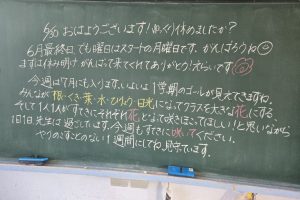 6/30 おはようございます!ゆっくり休めましたか?
6月最終日でも曜日はスタートの月曜日です。がんばろうね
まずは休み明けがんばって来てくれてありがとう!えらいです
今週は7月にも入ります。いよいよ1学期のゴールが見えてきますね。
みんなが根・くき・葉・水・ひりょう・日光になってクラスを大きな花にする。
そして1人1人がすてきにそれぞれ花となって咲きほこってほしい!と思いながら
1日1日先生は過ごしています。今週もすてきに咲いてください。
やりのこすことのない1週間にしてね 見守ています。